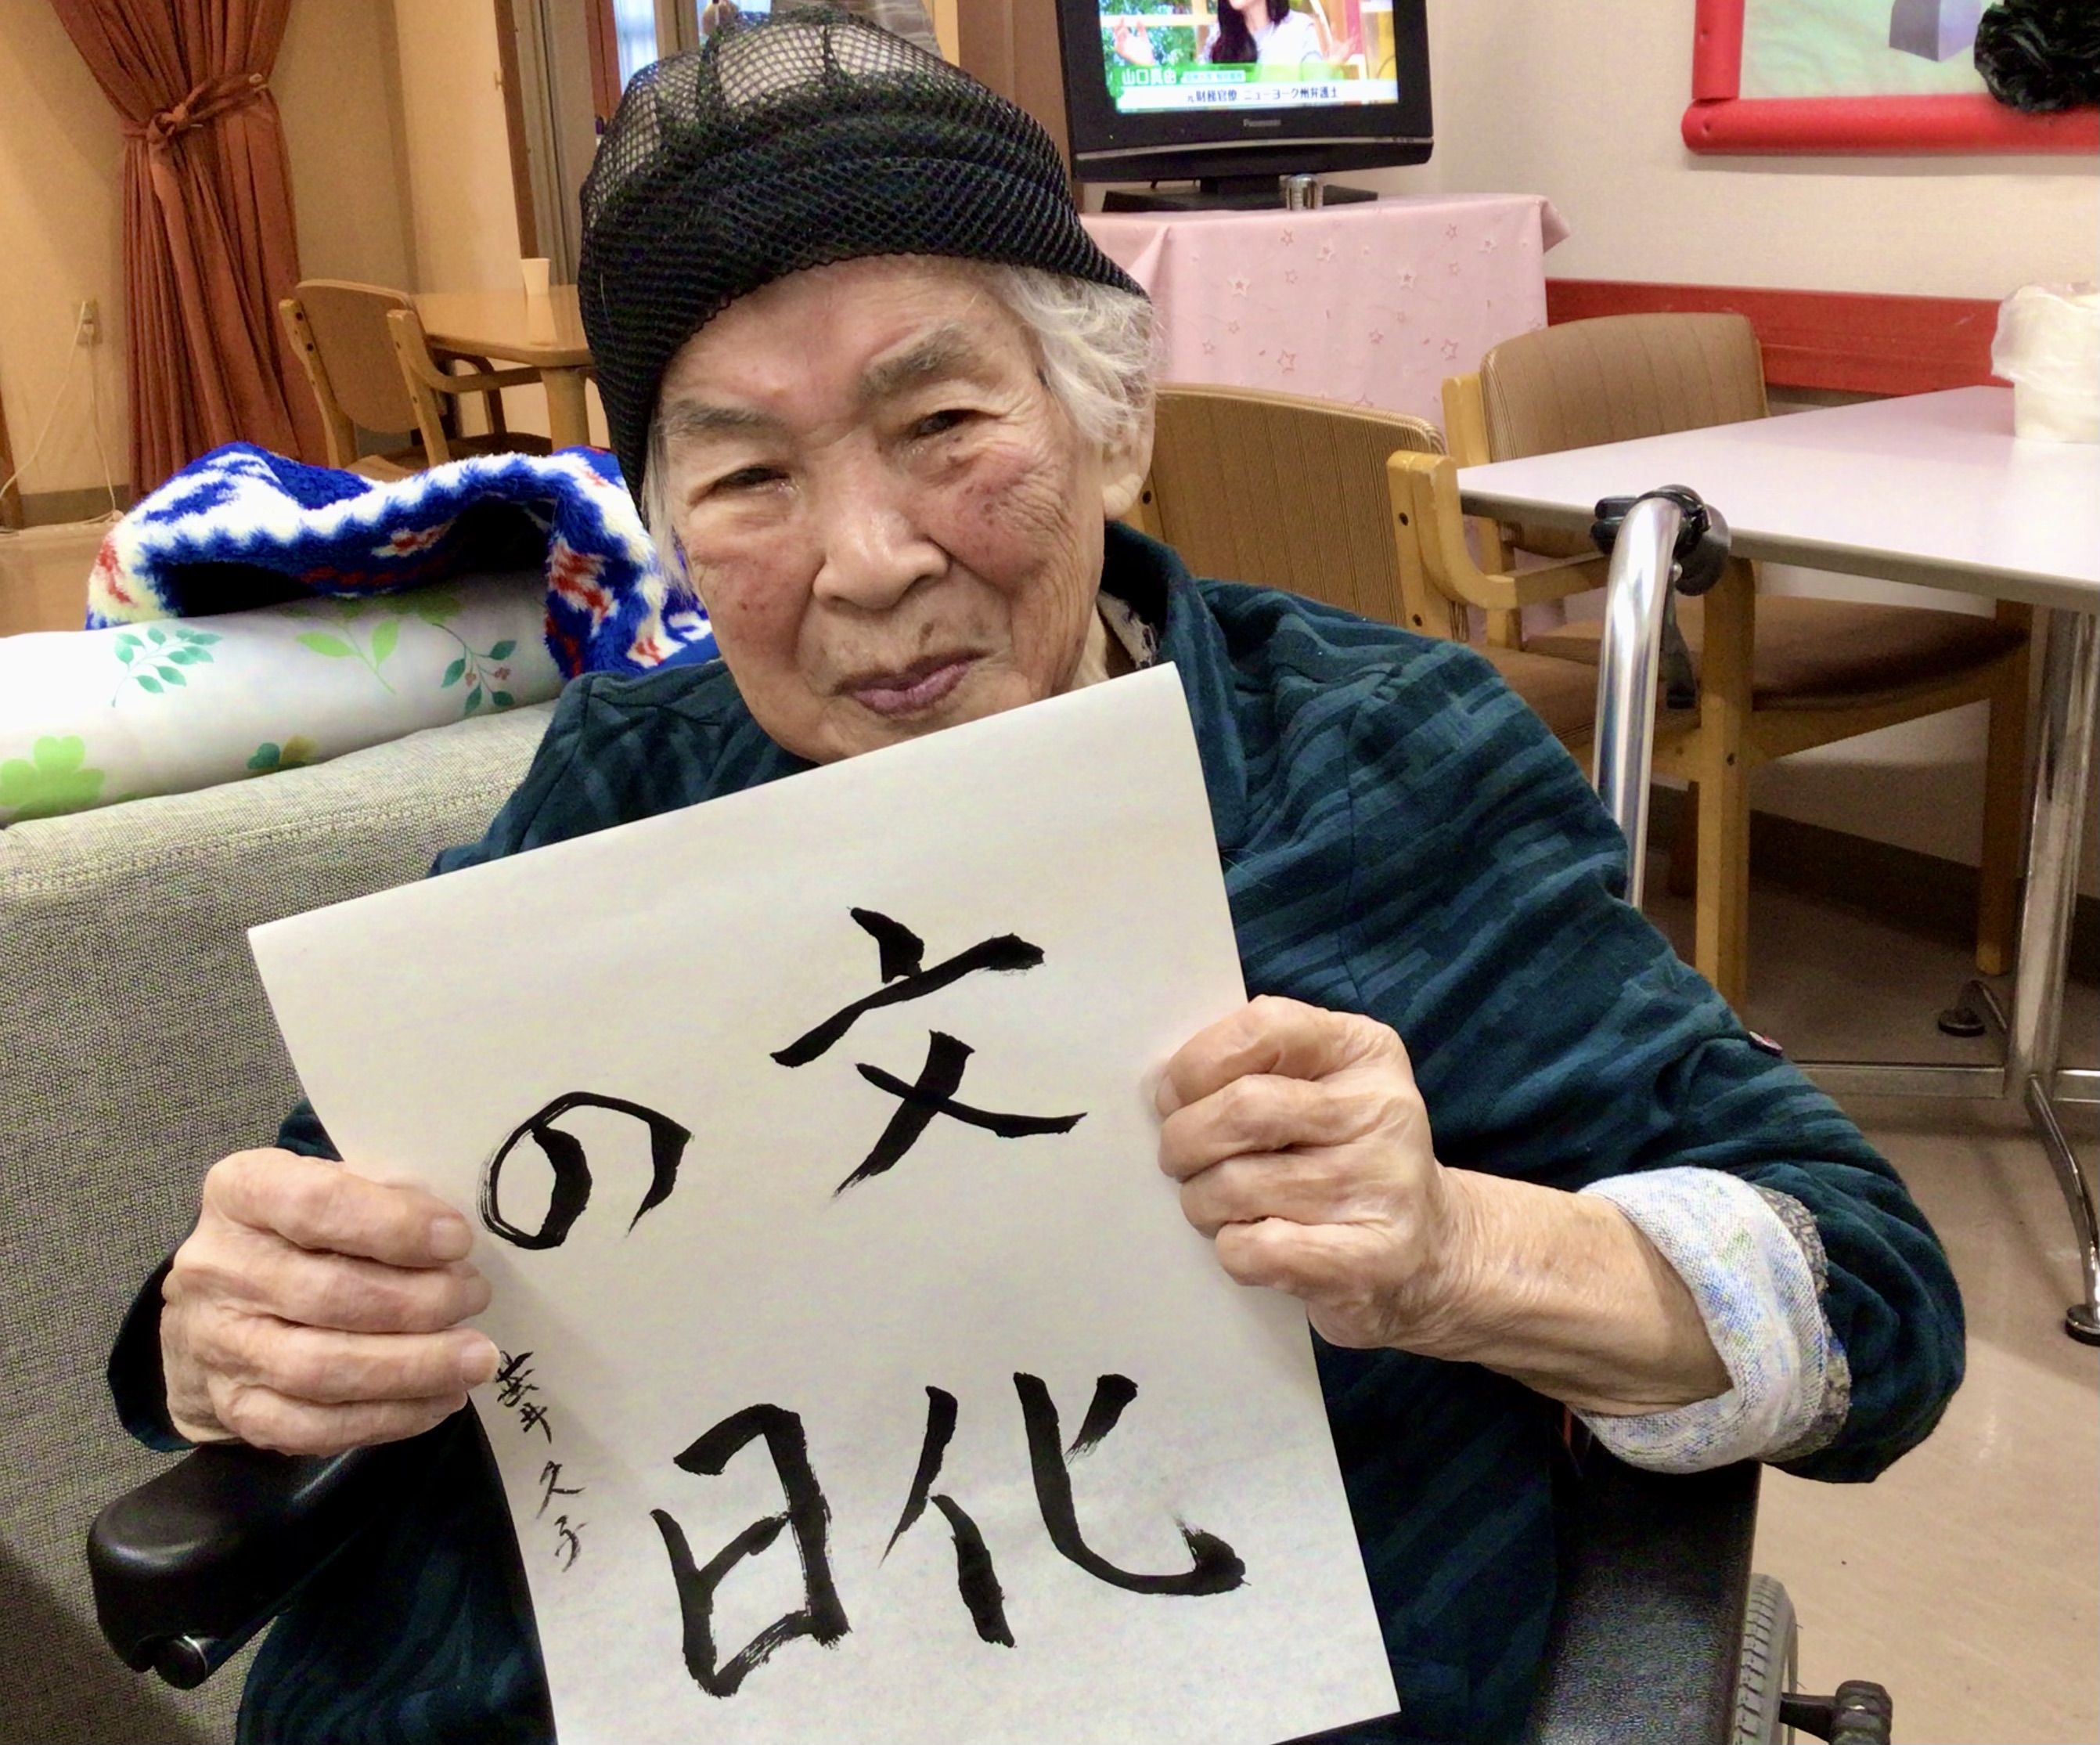 山口真由
元財務官僚 ニューヨーク州弁護士
Panasonic
文化
の日
久子